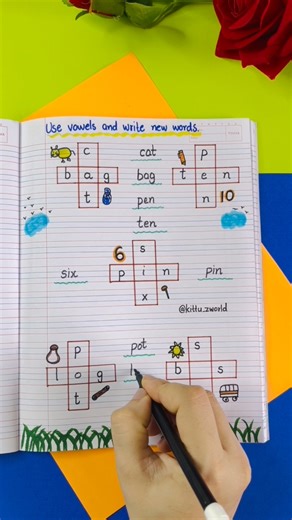 Use vowels and write new words.
c
b a g
t
cat
bag
pen
ten
p
t e n
n 10
6
s
p i n
x
six
pin
@kittu_zworld
p
l o g
t
pot
l
s
b s